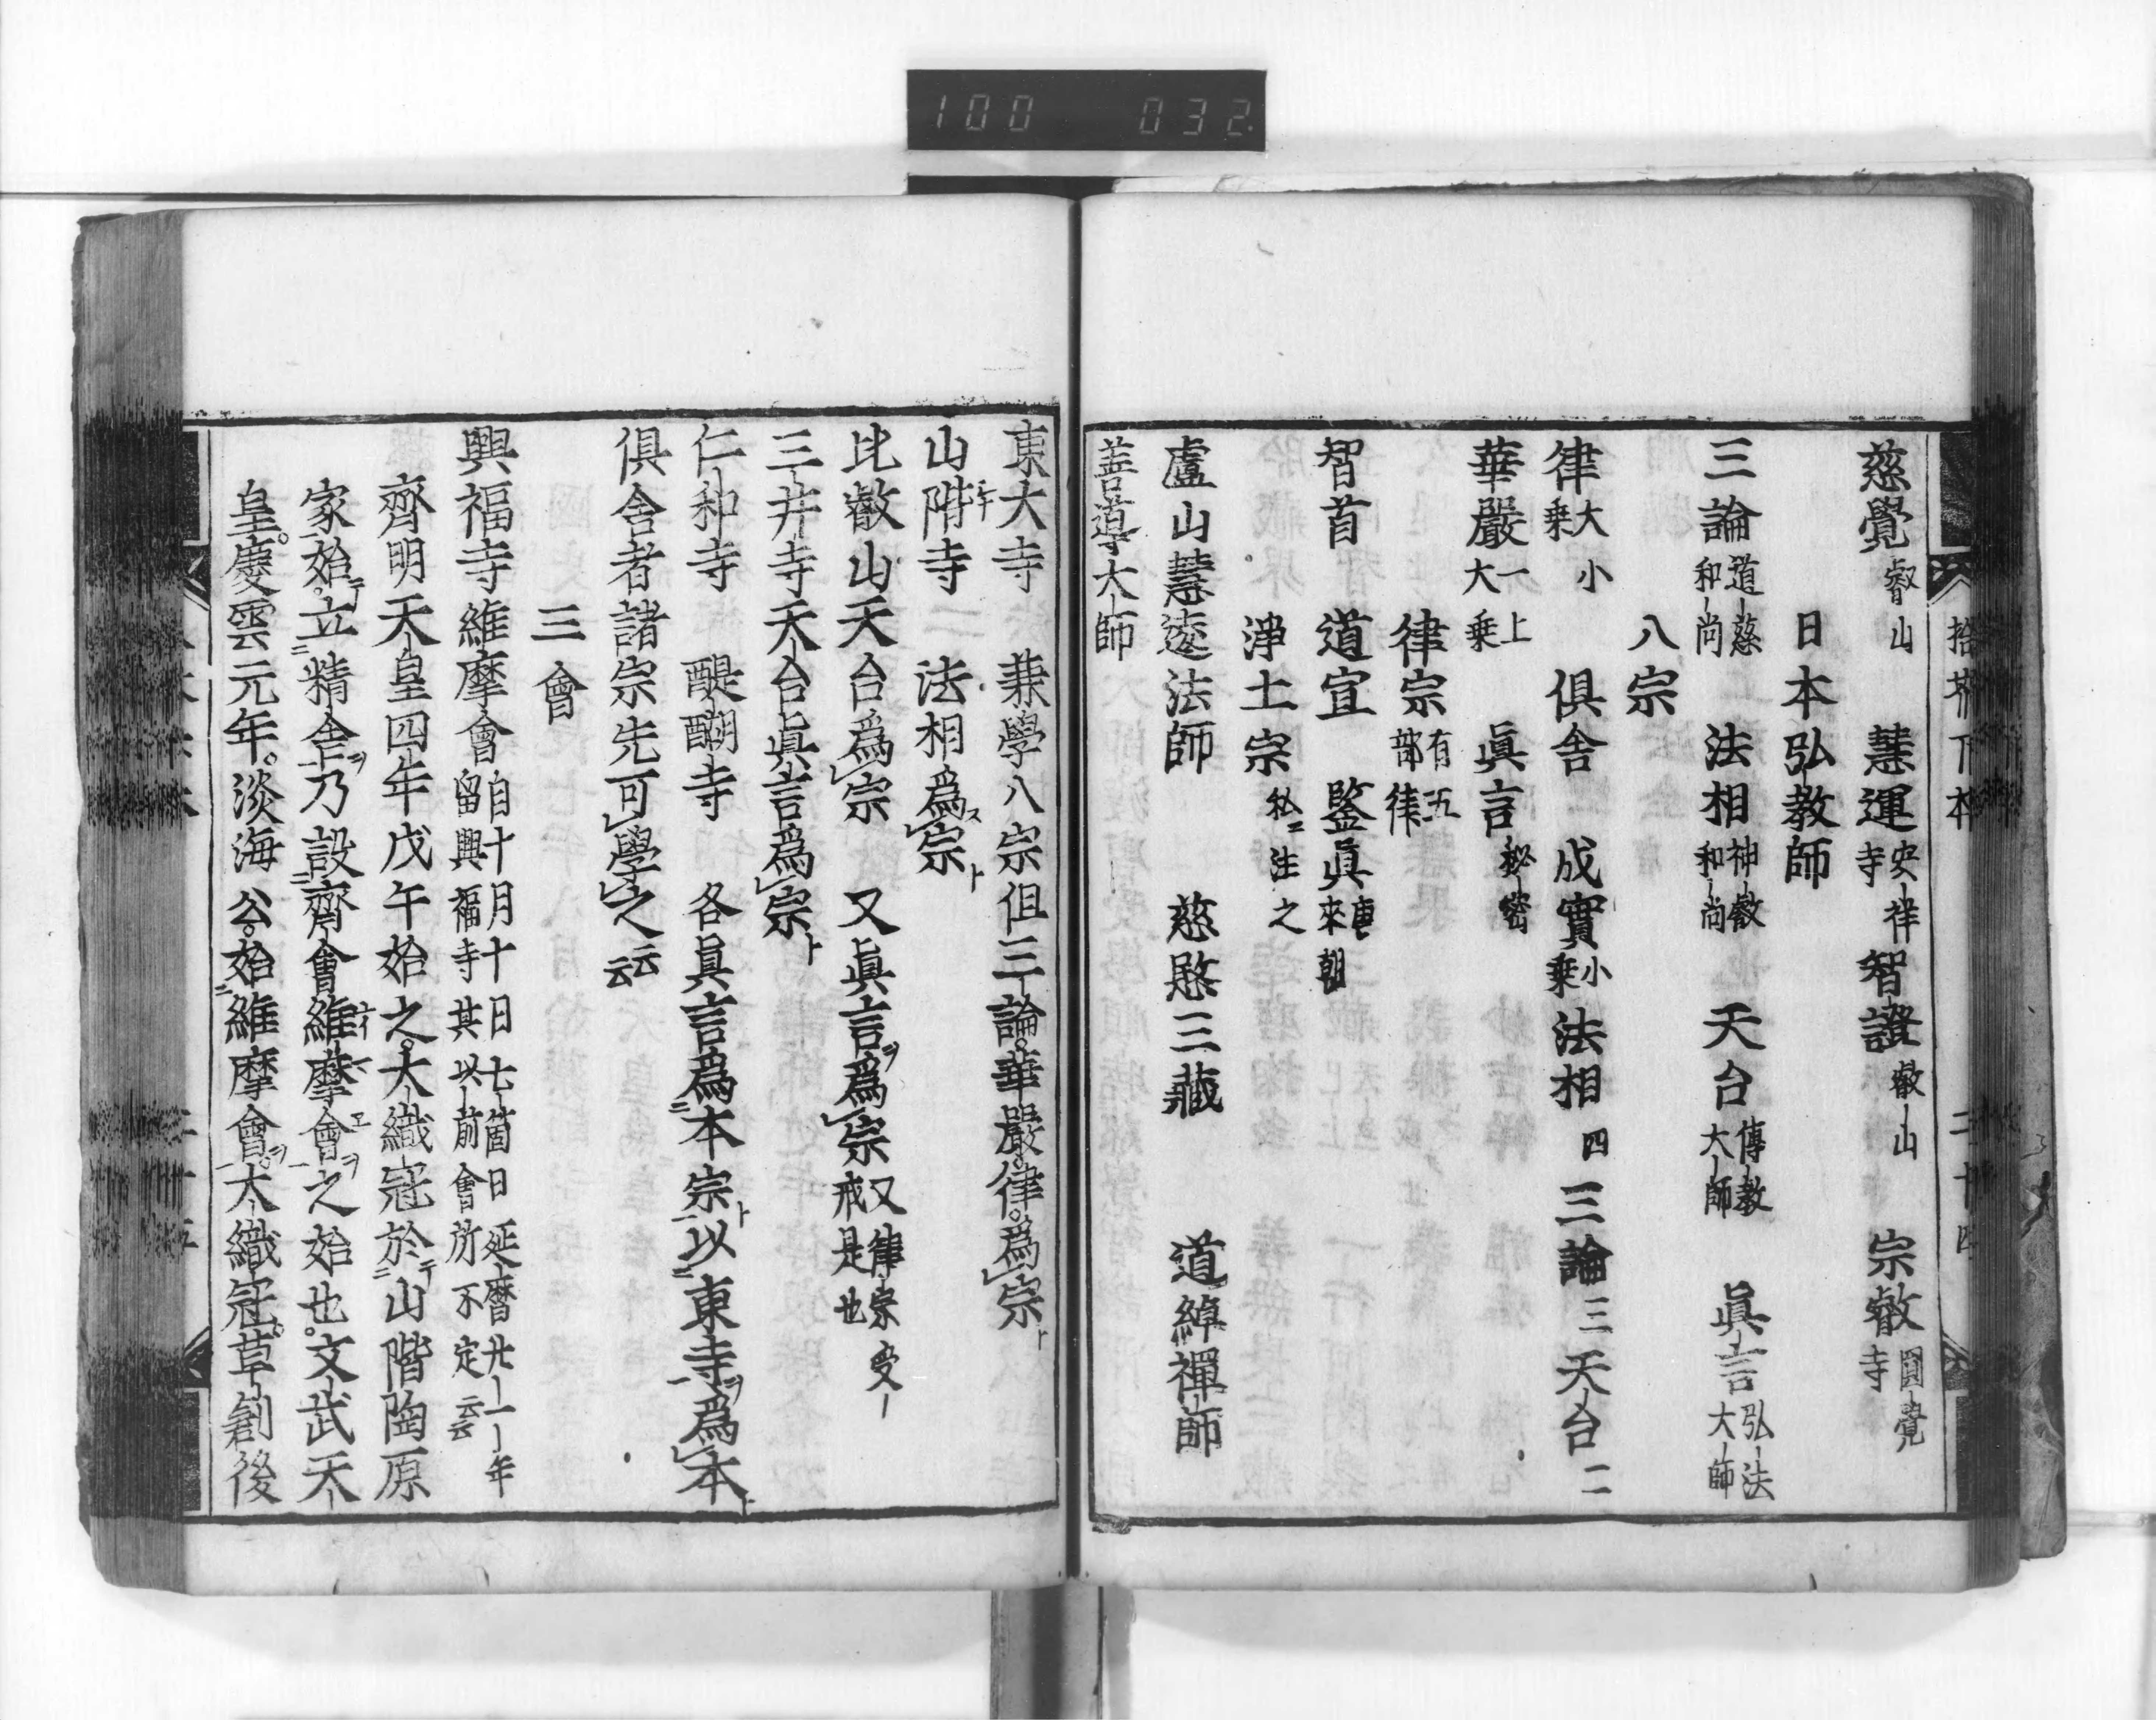 100 032
拾芥下本 二十四
慈覺叡山 慧運安祥寺 智證叡山 宗叡圓覺寺
日本弘教師
三論道慈和尚 法相神叡和尚 天台傳教大師 眞言弘法大師
八宗
律大小乗 俱舍 成實小乗 法相四 三論三 天台二
華嚴一上大乗 眞言秘密
律宗有五部律
智首 道宣 鑒眞唐來朝
淨土宗私ニ注之
盧山慧遠法師 慈愍三藏 道綽禪師
善導大師
東大寺 兼學八宗但三論。華嚴。律。爲宗ト
山階寺 法相爲ス宗ト
比叡山天台爲宗 又眞言ヲ爲宗又律宗受戒是也
三井寺天台眞言爲宗ト
仁和寺 醍醐寺 各眞言爲ニ本宗ト以ニ東寺ヲ爲本ト
俱舍者諸宗先可學之云云
三會
興福寺維摩會自十月十日七箇日延暦廿一年留興福寺其以前會所不定云云
齊明天皇四年戊午始之。大織冠於ニテ山階陶原
家始。テ立ニ精舍ヲ乃設ニ齊會維摩會ヲ之始也。文武天
皇。慶雲元年。淡海公。始ニ維摩會ヲ。大織冠。草創後